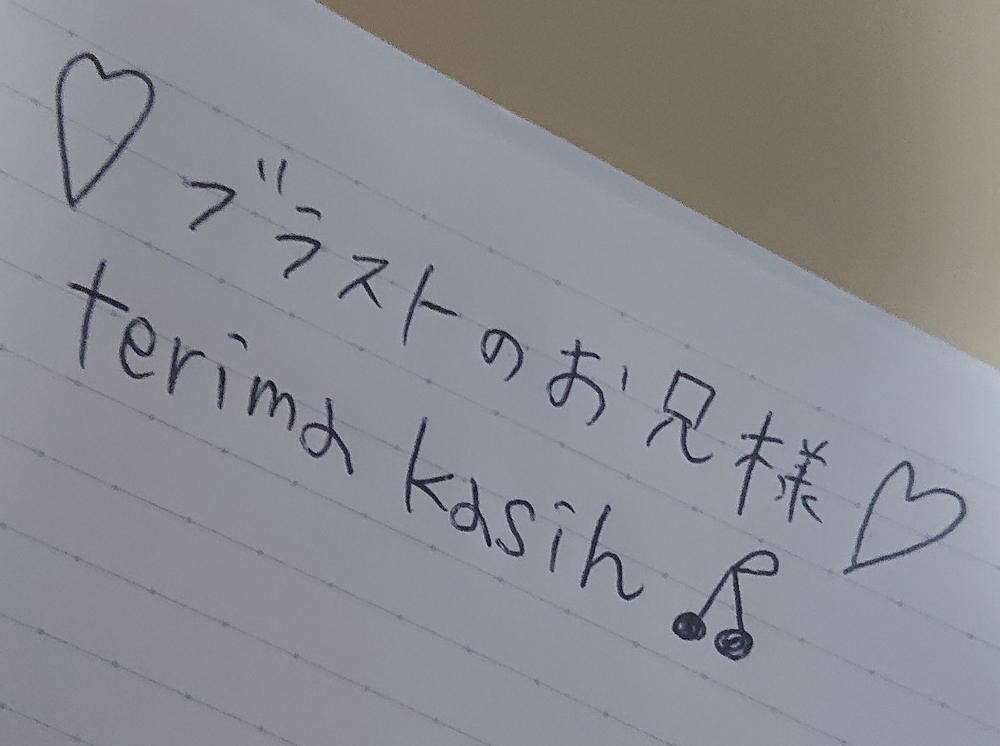 ♡ブラストのお兄様♡
terima kasih